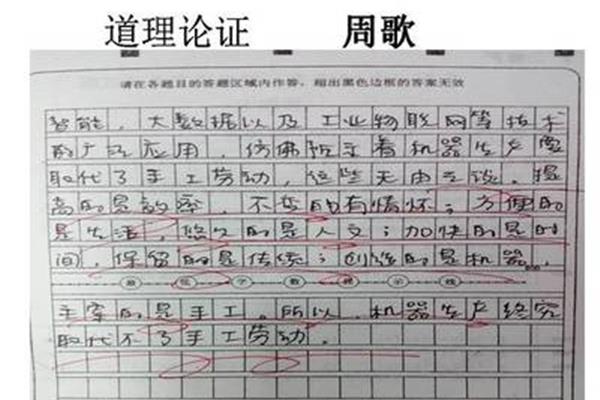 道理论证 周歌
请在各题目的答题区域内作答，超出黑色边框的答案无效
智能，大数据以及工业物联网等技术
的广泛应用，仿佛预示着机器生产要
取代了手工劳动，这些无由之谈。提
高的是效率，不变的有情怀；方便的
是生活，悠久的是人文；加快的是时
间，保留的是传统；创造的是机器……
最低字数提示线
主宰的是手工。所以，机器生产终究
取代不了手工劳动。